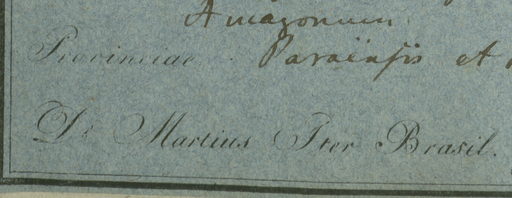 Amazonum
Provinciae Paraënsis et
Dr Martius Iter Brasil.